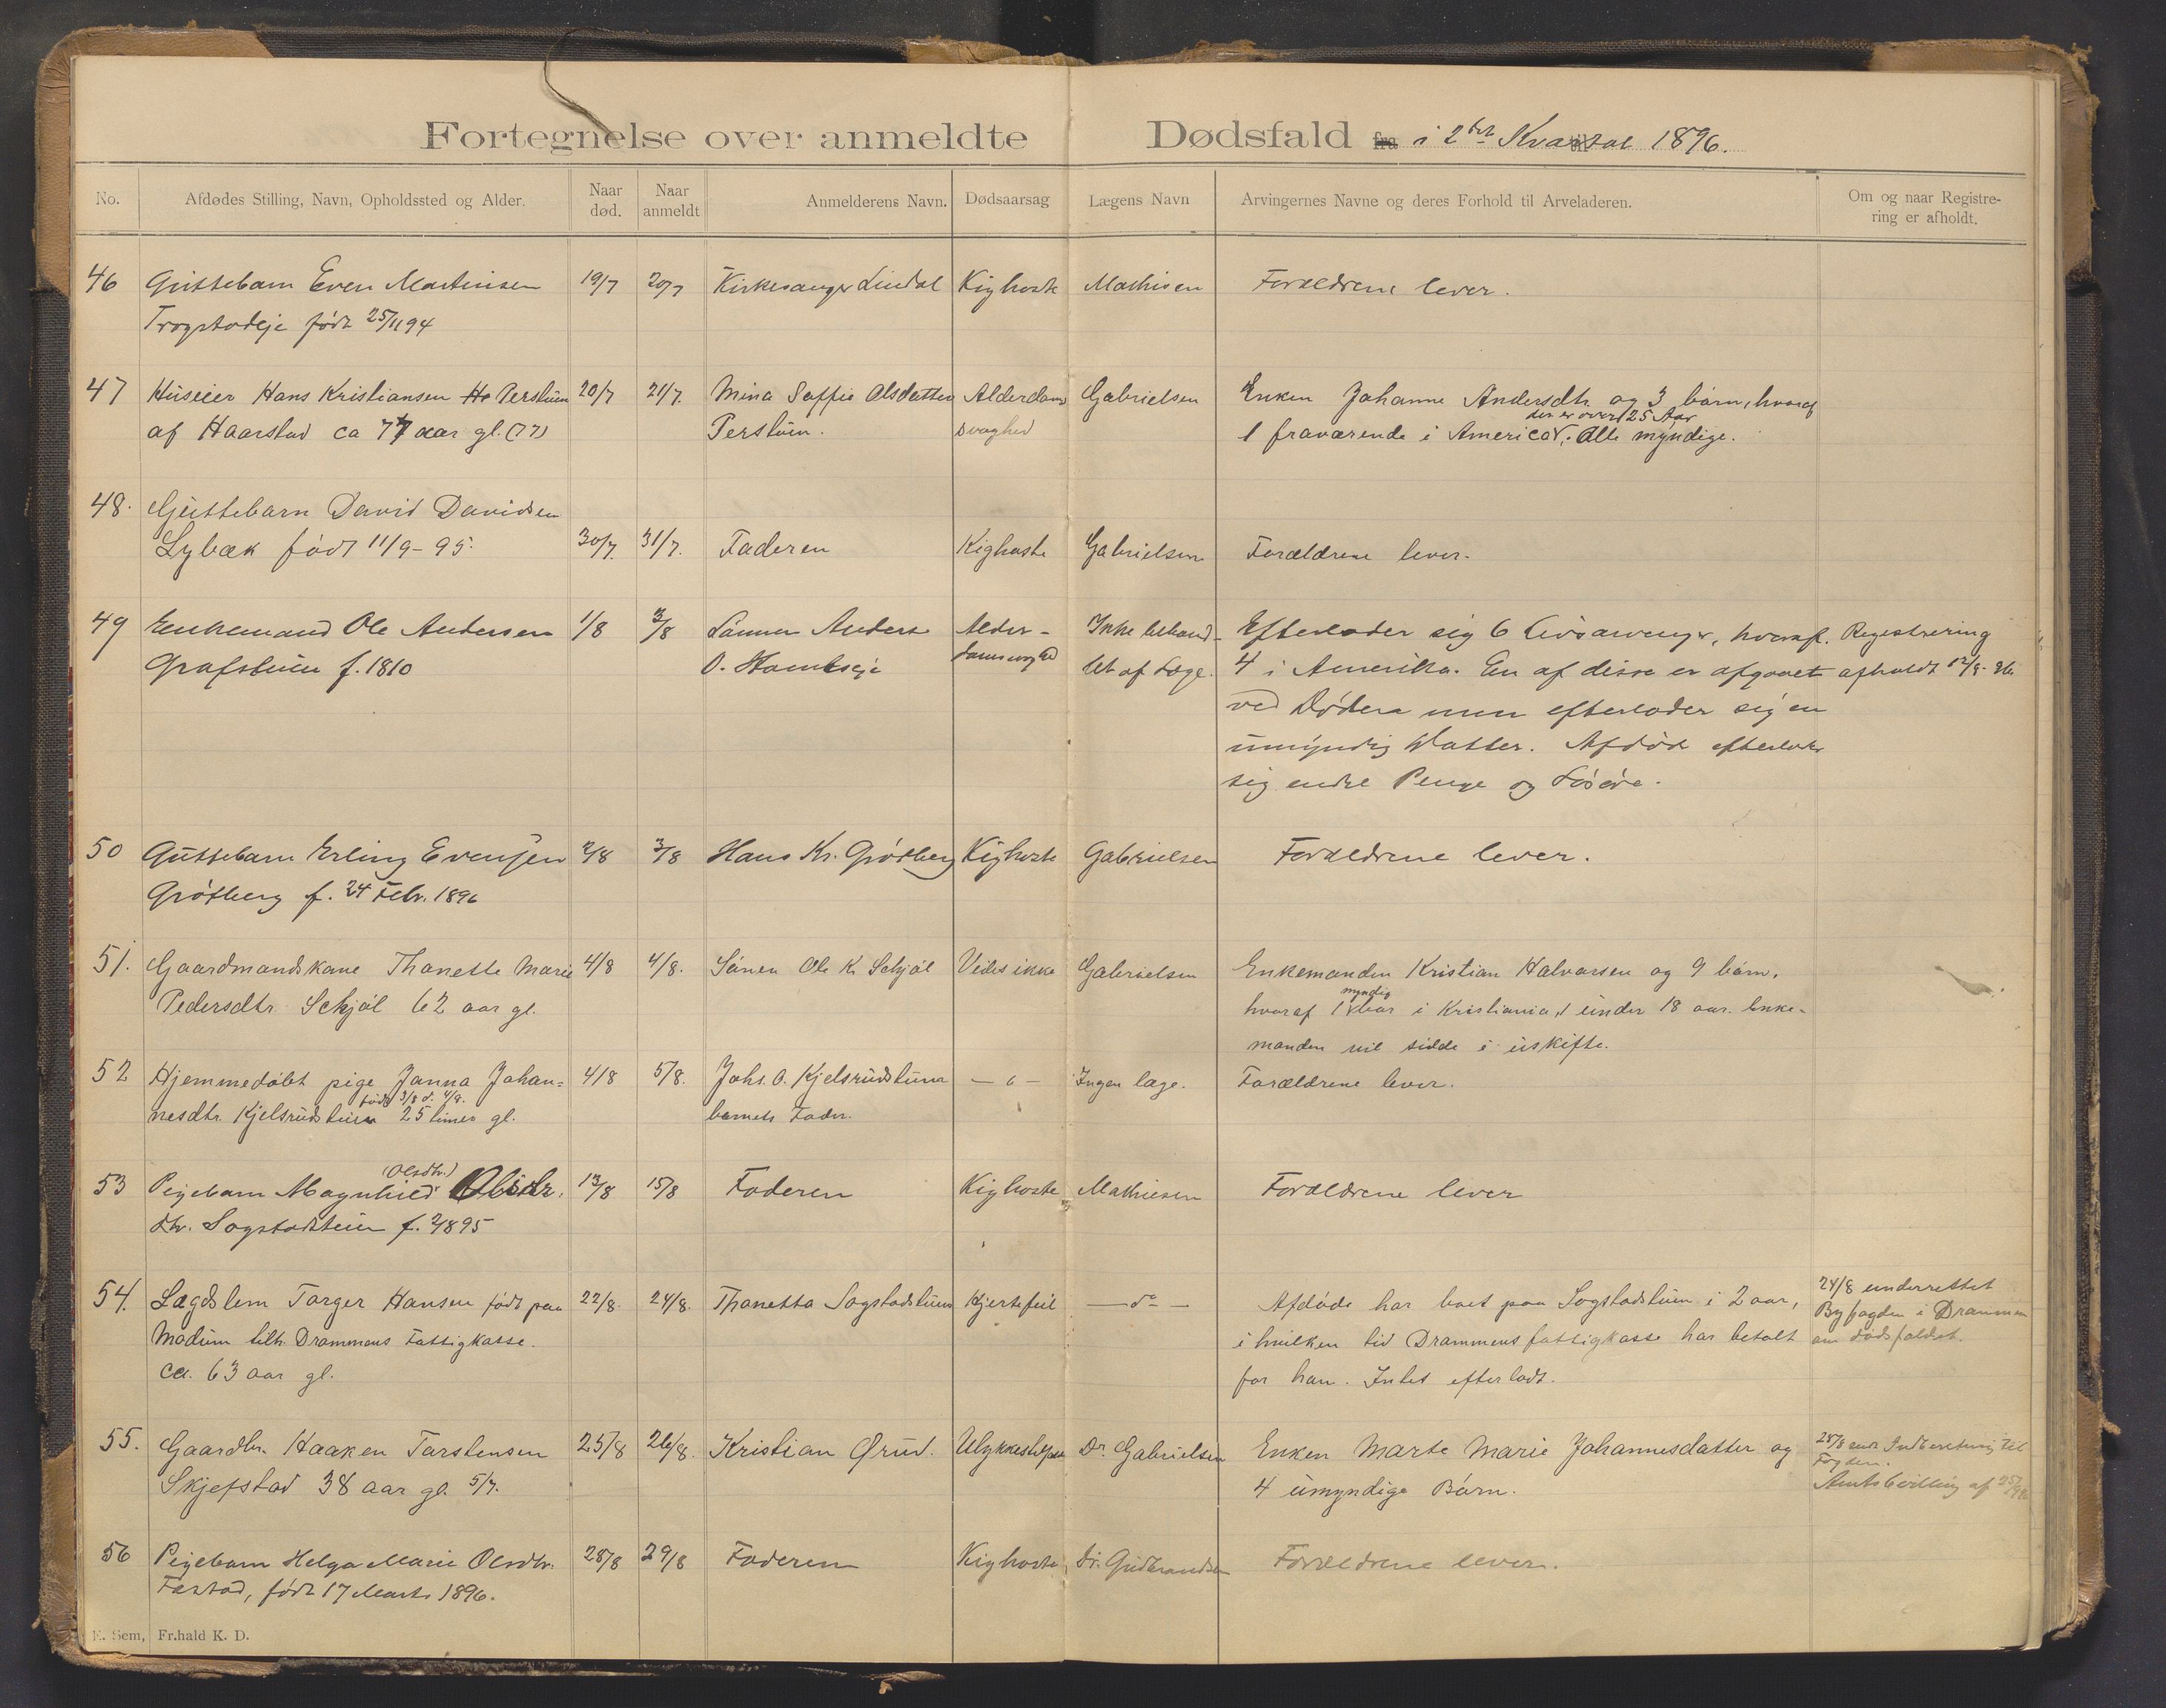 Fortegnelse over anmeldte Dødsfald fra i 2det Kvartal 1896.
No. Afdødes Stilling, Navn, Opholdssted og Alder. Naar død. Naar anmeldt Anmelderens Navn. Dødsaarsag Lægens Navn Arvingernes Navne og deres Forhold til Arveladeren. Om og naar Registrering er afholdt.
46 Guttebarn Even Martinsen 19/7 20/7 Kirkesanger Lindal Kighoste Mathisen Forældrene lever.
Trogstadeje født 25/11 94
47 Huseier Hans Kristiansen Ha Perstuen 20/7 21/7. Mina Soffie Olsdatter Alderdoms Gabrielsen Enken Johanne Andersdtr. og 3 børn, hvoraf
af Haarstad ca 77 aar gl. (77) Perstuen. svaghed 1 fraværende i America, den er over 25 Aar. Alle myndige.
48. Guttebarn David Davidsen
Lybæk født 11/9-95. 30/7. 31/7. Faderen Kighoste Gabrielsen Forældrene lever.
49 Enkemand Ole Andersen 1/8 3/8 Sønnen Anders Alder- Ikke behand- Efterlader sig 6 Livsarvinger, hvoraf Registrering
Grafstuen f. 1810 O. let af Læge. 4 i Amerika. En af disse er afgaaet afholdt 12/9-96
ved Døden men efterlader sig en
umyndig Datter. Afdøde efterlader
sig endel Penge og Løsøre.
50 Guttebarn Erling Evensen 2/8 3/8 Hans Kr. Grøtberg Kighoste Gabrielsen Forældrene lever.
Grøtberg f. 24 Febr. 1896
51. Gaardmandskone Thonette Marie 4/8 4/8. Sønen Ole K. Schjøl Vides ikke Gabrielsen Enkemanden Kristian Halvorsen og 9 børn,
Pedersdtr. Schjøl 62 aar gl. hvoraf 1 myndig bor i Kristiania, 1 under 18 aar. Enke-
manden vil sidde i uskifte.
52 Hjemmedøbt pige Janna Johan= 4/8 5/8. Johs. O. Kjelsrudstuen — " — Ingen læge. Forældrene lever.
nesdtr. Kjelsrudstuen født 3/8 d. 4/8. 25 timer gl. barnets Fader.
53 Pigebarn Magnhild (Olsdtr.) 13/8 15/8 Faderen Kighoste Mathiesen Forældrene lever
dtr. Sogstadstuen f. 2/8 95
54. Lægdslem Torger Hansen født paa 22/8. 24/8. Thonetta Sogstadstuen Hjertefeil — do — Afdøde har boet paa Sogstadstuen i 2 aar, 24/8 underrettet
Modum tilh. Drammens Fattigkasse. i hvilken tid Drammens fattigkasse har betalt Byfogden i Drammen
ca. 63 aar gl. for han. Intet efterladt. om dødsfaldet.
55. Gaardbr. Haaken Torstensen 25/8 26/8. Kristian Ørud. Dr. Gabrielsen Enken Marte Marie Johannesdatter og 28/8 sendt Indberetning til
Skjefstad 38 aar gl. 5/7. 4 umyndige Børn. Fogden.
Amtsbevilling af
56 Pigebarn Helga Marie Olsdtr. 28/8 29/8 Faderen Kighoste Dr. Gudbrandsen Forældrene lever.
født 17 Marts 1896.
E. Sem, Fr.hald K. D.